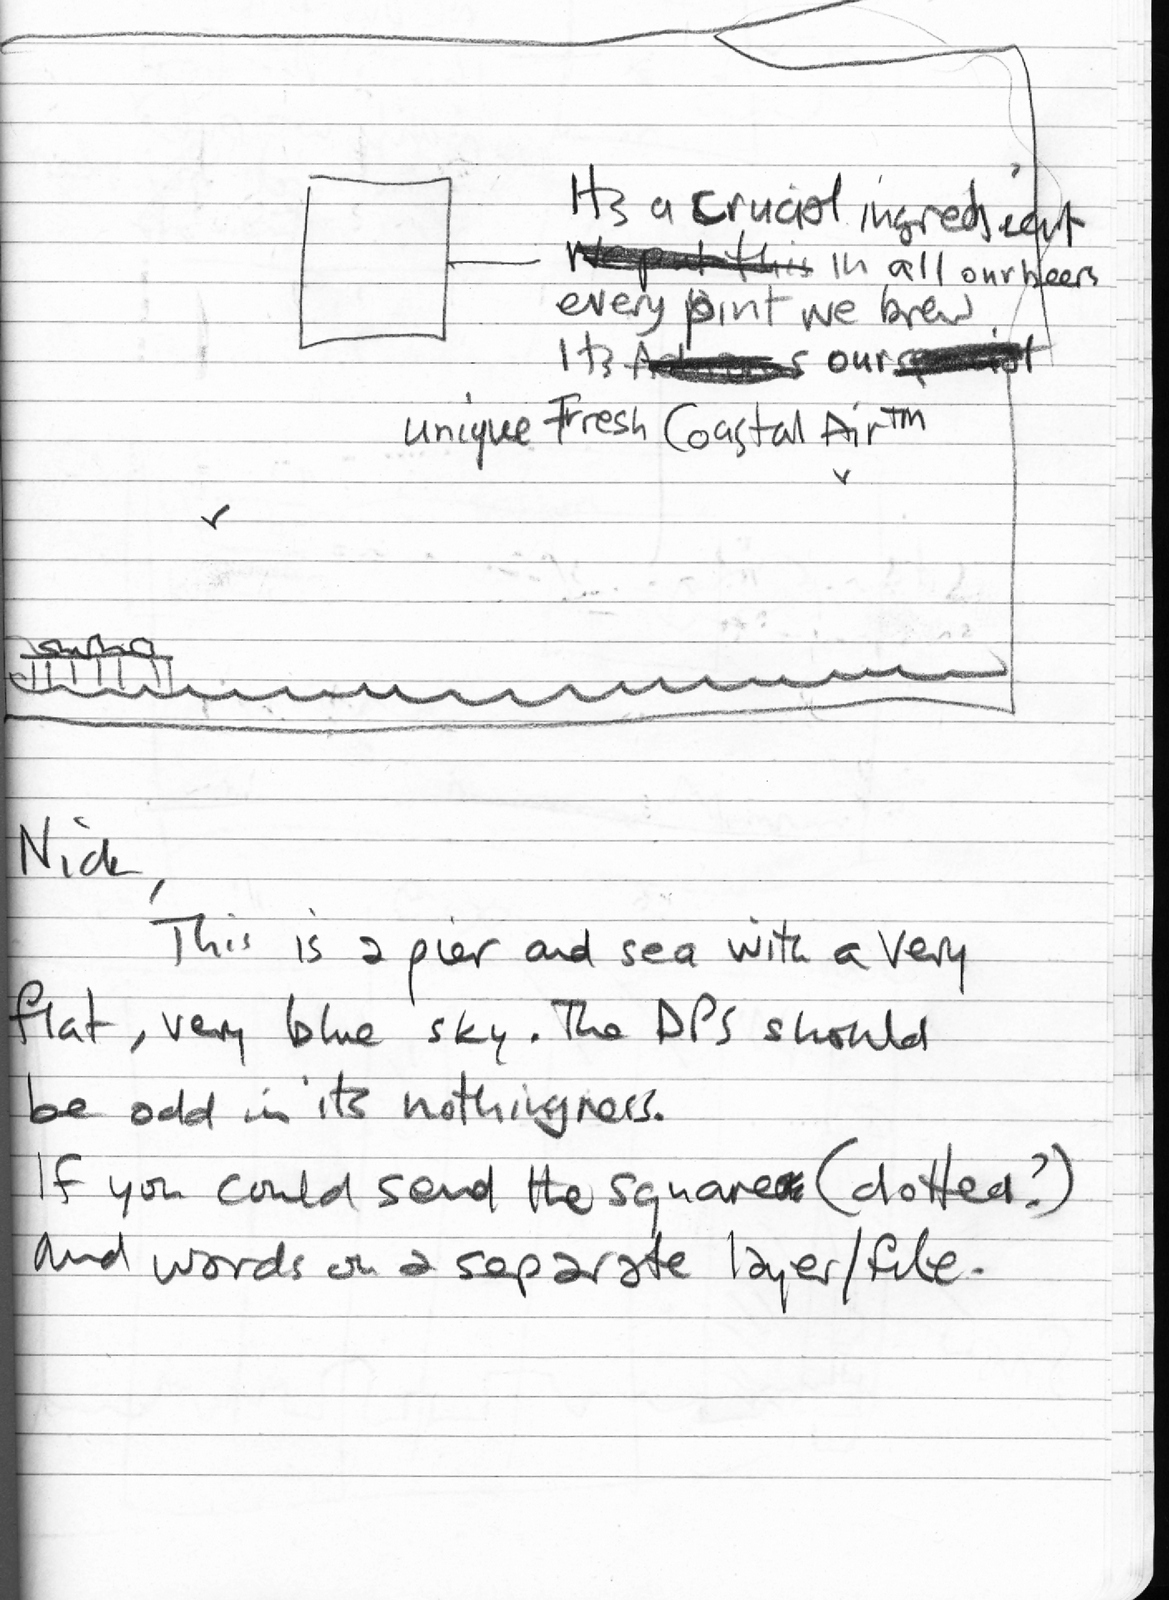 It's a crucial ingredient
We put this in all our beers
every pint we brew
It's our
unique Fresh Coastal Air™
Nick,
This is a pier and sea with a very
flat, very blue sky. The DPS should
be odd in its nothingness.
If you could send the square (dotted?)
and words on a separate layer/file.